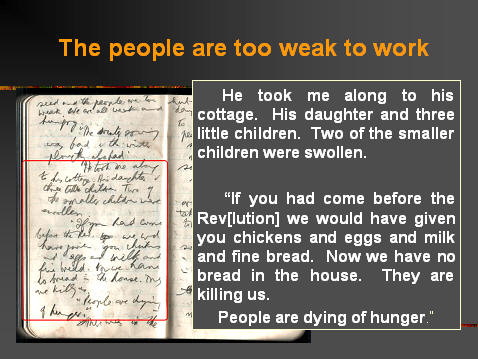 The people are too weak to work
seed and the people are too
weak. We are all weak and
hungry.
The winter sowing
was bad
He took me along
to his cottage. His daughter &
three little children. Two of
the smaller children were
swollen.
"If you had come
before the Rev. we wd
have given you chickens
and eggs and milk and
fine bread. Now we have
no bread in the house. They
are killing us."
"People are dying
of hunger."
There was in the
He took me along to his
cottage. His daughter and three
little children. Two of the smaller
children were swollen.
“If you had come before the
Rev[lution] we would have given
you chickens and eggs and milk
and fine bread. Now we have no
bread in the house. They are
killing us.
People are dying of hunger.”